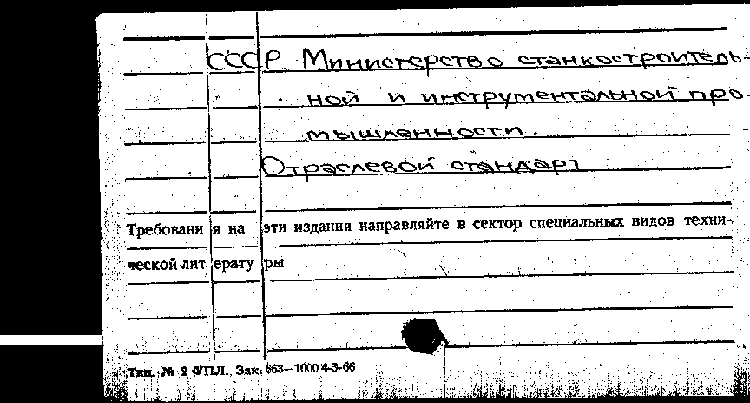 СССР Министерство станкостроитель-
ной и инструментальной про
мышленности.
Отраслевой стандарт
Требования на эти издания направляйте в сектор специальных видов техни-
ческой литературы
Тип. № 2 Зак. 863—10004-3-66